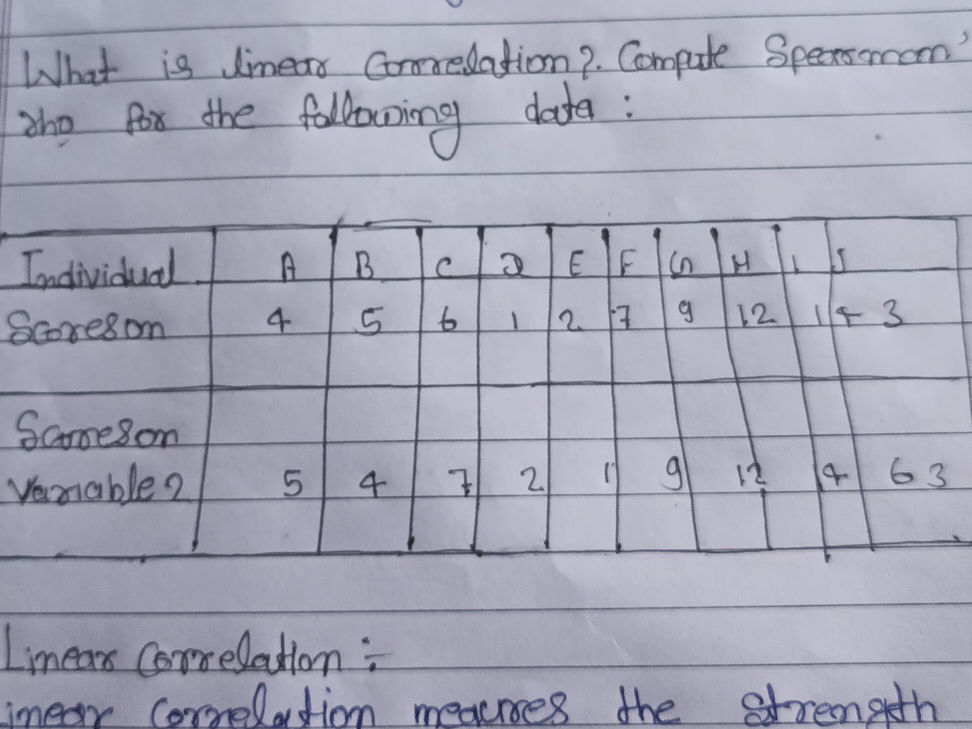 What is linear Correlation?. Compute Spearsman's
rho for the following data :
Individual A B C D E F G H I J
Scoreson 4 5 6 1 2 7 9 12 14 3
Scoreson
Variable 2 5 4 7 2 1 9 12 14 6 3
Linear Correlation :-
Linear Correlation meacures the strength